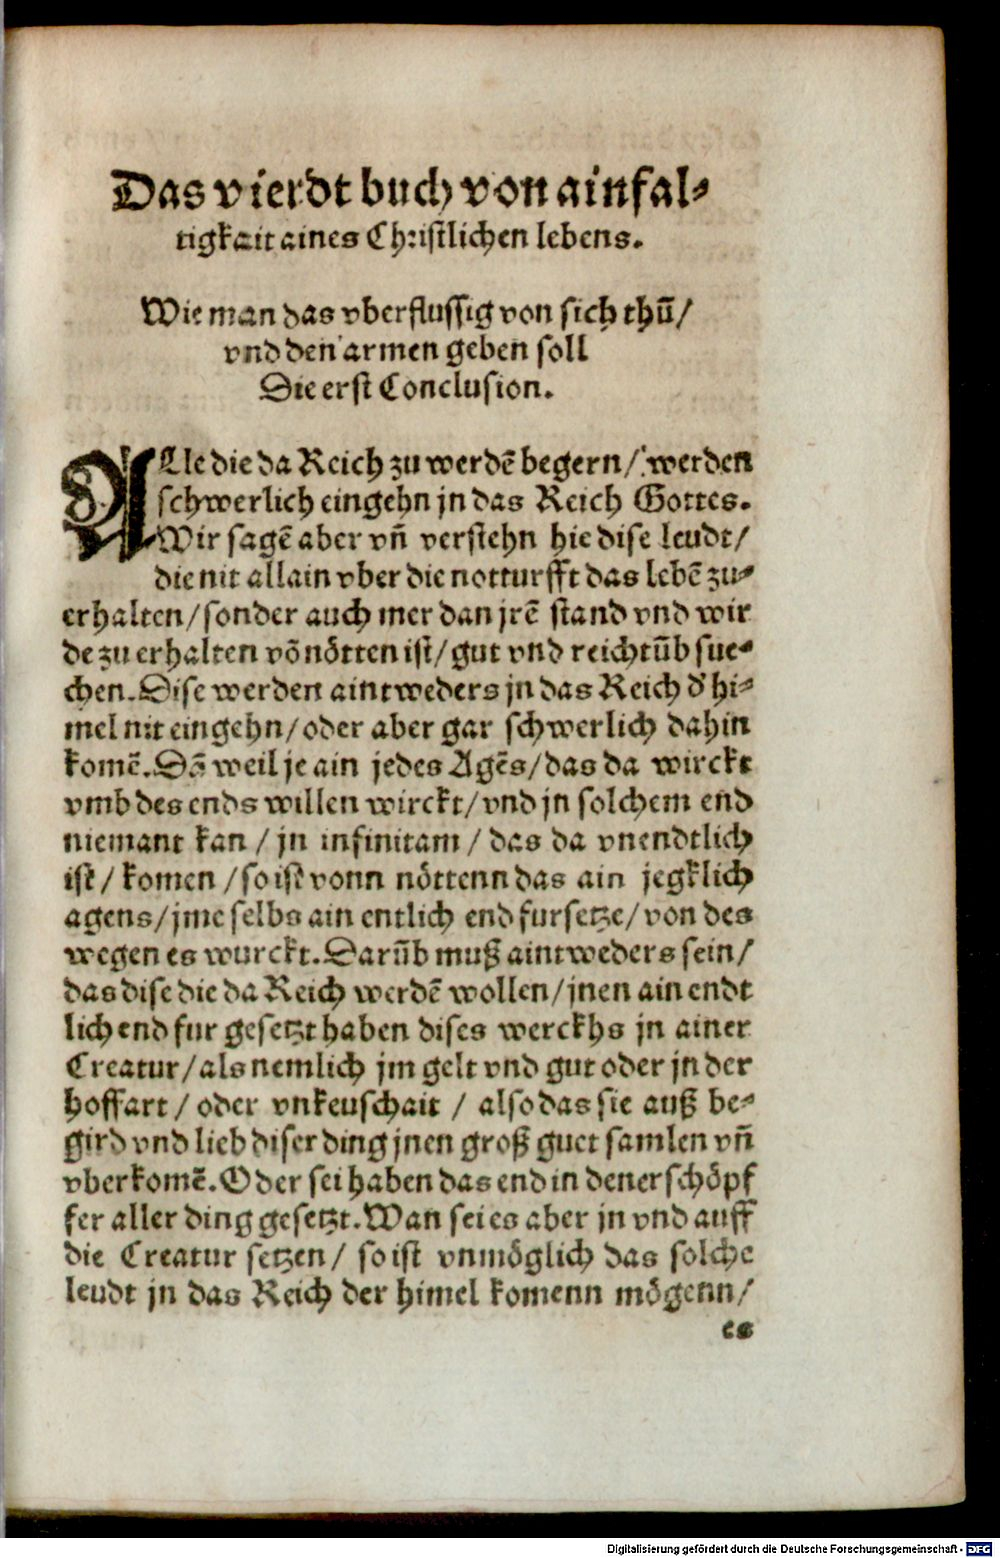 Das vierdt buch von ainfal⸗
tigkait aines Christlichen lebens.
Wie man das vberflussig von sich thū/
vnd den armen geben soll
Die erst Conclusion.
ALle die da Reich zu werdē begern/ werden
schwerlich eingehn jn das Reich Gottes.
Wir sagē aber vn̄ verstehn hie dise leudt/
die nit allain vber die notturfft das lebē zu⸗
erhalten/sonder auch mer dan jrē stand vnd wir
de zu erhalten vō nötten ist/ gut vnd reichtūb sue⸗
chen. Dise werden aintweders jn das Reich d' hi⸗
mel nit eingehn/oder aber gar schwerlich dahin
komē. Dā weil je ain jedes Agēs/das da wirckt
vmb des ends willen wirckt/vnd jn solchem end
niemant kan / jn infinitam / das da vnendtlich
ist/ komen /so ist vonn nöttenn das ain jegklich
agens/jme selbs ain entlich end fursetze/von des
wegen es wurckt. Darūb muß aintweders sein/
das dise die da Reich werdē wollen/jnen ain endt
lich end fur gesetzt haben dises werckhs jn ainer
Creatur/als nemlich jm gelt vnd gut oder jn der
hoffart/ oder vnkeuschait / also das sie auß be⸗
gird vnd lieb diser ding jnen groß guet samlen vn̄
vberkomē. Oder sei haben das end in den erschöpf
fer aller ding gesetzt. Wan sei es aber jn vnd auff
die Creatur setzen/ so ist vnmöglich das solche
leudt jn das Reich der himel komenn mögenn/
es
Digitalisierung gefördert durch die Deutsche Forschungsgemeinschaft - DFG